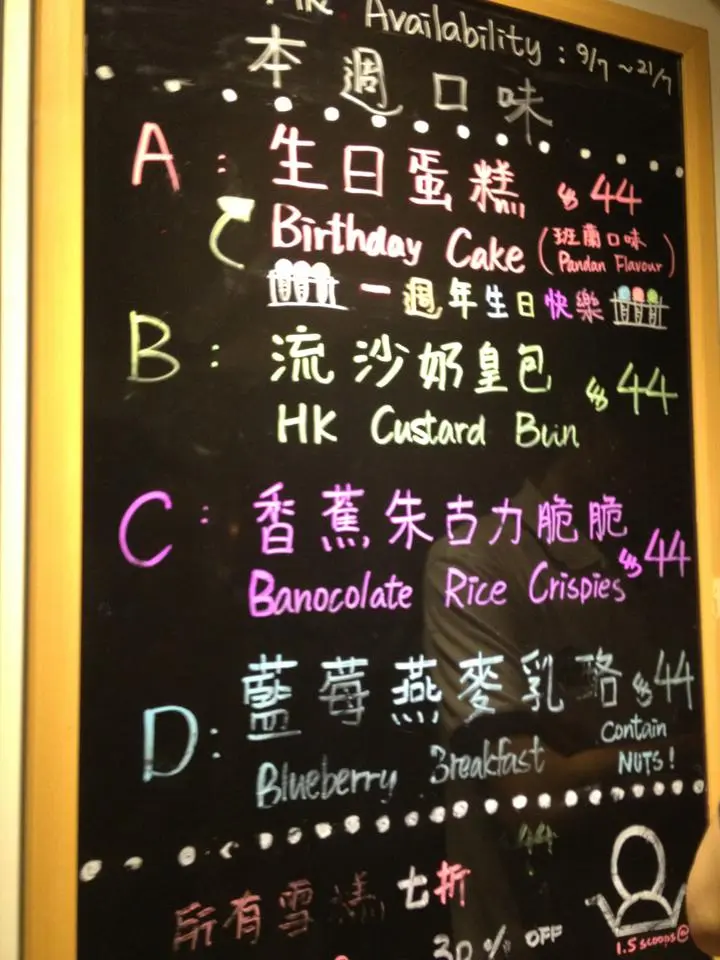 Availability : 9/7 ~ 21/7
本週口味
A : 生日蛋糕 $44
Birthday Cake (班蘭口味 Pandan Flavour)
一週年生日快樂
B : 流沙奶皇包 $44
HK Custard Bun
C : 香蕉朱古力脆脆 $44
Banocolate Rice Crispies
D : 藍莓燕麥乳酪 $44
Blueberry Breakfast contain NUTS!
44
所有雪糕 七折
30% OFF
1.5 scoops@